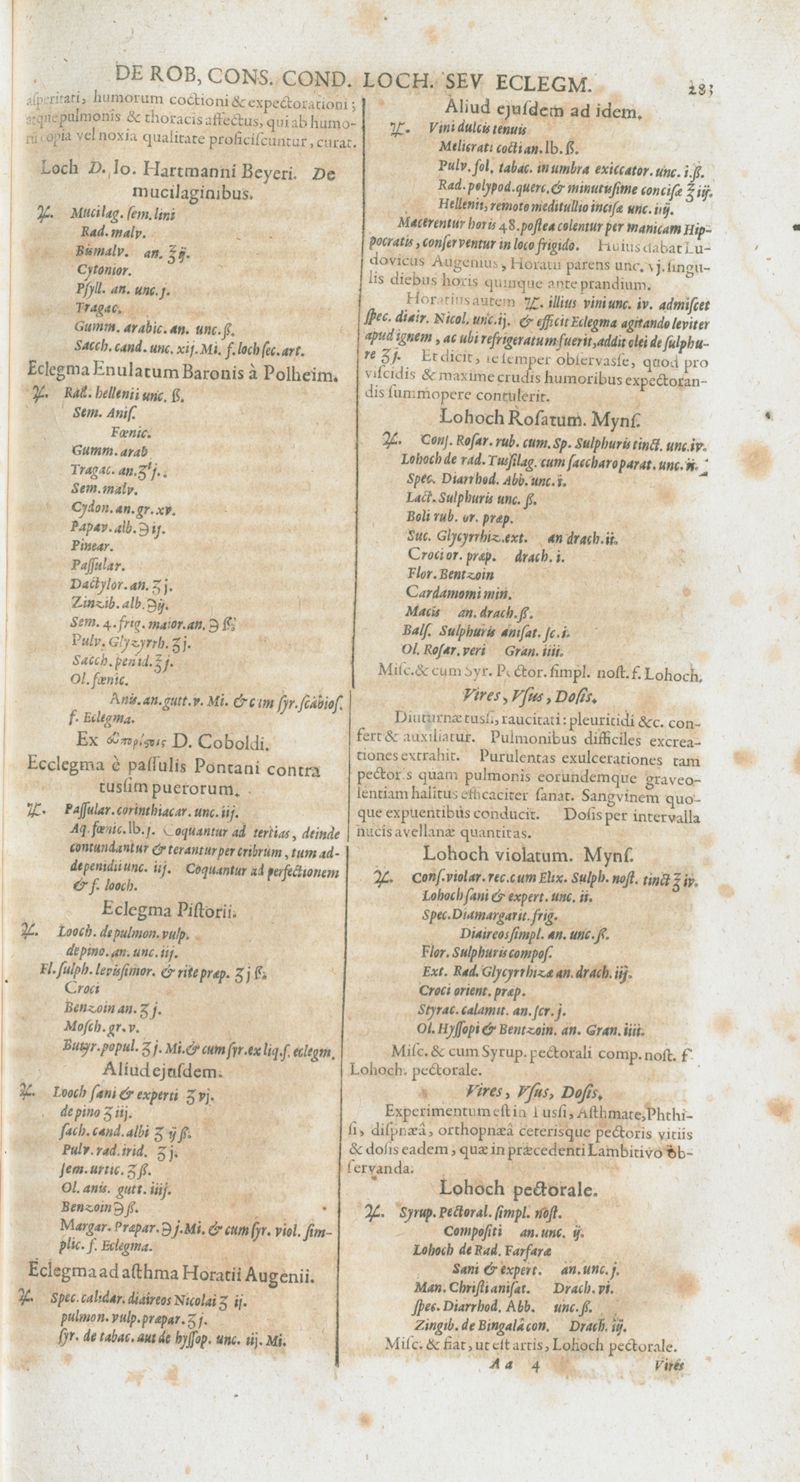 DE ROB, CONS. COND. LOCH. SEV ECLEGM. 283
aſperitati, humorum coctioni & expectorationi;
atque pulmonis & thoracis affectus, qui ab humo-
rū copia vel noxia qualitate proficiſcuntur, curat.
Loch D. Io. Hartmanni Beyeri. De
mucilaginibus.
℞. Mucilag. ſem. lini
Rad. malv.
Bismalv. an. ℥ij.
Cytonior.
Pſyll. an. unc. j.
Tragac.
Gumm. arabic. an. unc. ß.
Sacch. cand. unc. xij. Mi. f. loch ſec. art.
Eclegma Enulatum Baronis à Polheim.
℞. Rad. hellenii unc. ß.
Sem. Aniſ.
Fœnic.
Gumm. arab
Tragac. an. ʒj.
Sem. malv.
Cydon. an. gr. xv.
Papav. alb. ℈ij.
Pinear.
Paſſular.
Dactylor. an. ʒj.
Zinzib. alb. ℈ij.
Sem. 4. frig. maior. an. ℈ß.
Pulv. Glyzyrrh. ʒj.
Sacch. penid. ℥j.
Ol. fœnic.
Anis. an. gutt. v. Mi. & cum ſyr. ſcabioſ.
f. Eclegma.
Ex D. Coboldi.
Ecclegma è paſſulis Pontani contra
tusſim puerorum.
℞. Paſſular. corinthiacar. unc. iij.
Aq. fœnic. lb. j. Coquantur ad tertias, deinde
contundantur & teranturper cribrum, tum ad-
de penidii unc. iij. Coquantur ad perfectionem
& f. looch.
Eclegma Piſtorii.
℞. Looch. de pulmon. vulp.
de pino. an. unc. iij.
Fl. ſulph. levisſimor. & rite præp. ʒj ß.
Croci
Benzoin an. ʒj.
Moſch. gr. v.
Butyr. popul. ʒj. Mi. & cum ſyr. ex liq. f. eclegm.
Aliud ejuſdem.
℞. Looch ſani & experti ʒvj.
de pino ʒiij.
ſach. cand. albi ʒij ß.
Pulv. rad. irid. ʒj.
ſem. urtic. ʒß.
Ol. anis. gutt. iiij.
Benzoin ℈ß.
Margar. Præpar. ℈j. Mi. & cum ſyr. viol. ſim-
plic. f. Eclegma.
Eclegma ad aſthma Horatii Augenii.
℞. Spec. calidar. diaireos Nicolai ʒ ij.
pulmon. vulp. præpar. ʒj.
ſyr. de tabac. aut de hyſſop. unc. iij. Mi.
Aliud ejuſdem ad idem.
℞. Vini dulcis tenuis
Melicrati cocti an. lb. ß.
Pulv. fol. tabac. in umbra exiccator. unc. i. ß.
Rad. polypod. querc. & minutuſime conciſæ ℥iij.
Hellenii, remoto meditullio inciſæ unc. iiij.
Macerentur horis 48. poſtea colentur per manicam Hip-
pocratis, conſerventur in loco frigido. Huius dabat Lu-
dovicus Augenius, Horatii parens unc. vj. ſingu-
lis diebus horis quinque ante prandium.
Horatius autem ℞. illius vini unc. iv. admiſcet
ſpec. diair. Nicol. unc. ij. & efficit Eclegma agitando leviter
apud ignem, ac ubi refrigeratum fuerit, addit olei de ſulphu-
re ʒj. Et dicit, ſe ſemper obſervasſe, quod pro
viſcidis & maxime crudis humoribus expectoran-
dis ſummopere contulerit.
Lohoch Roſatum. Mynſ.
℞. Conſ. Roſar. rub. cum. Sp. Sulphuris tinct. unc. iv.
Lohoch de rad. Tusſilag. cum ſaccharo parat. unc. ii.
Spec. Diarrhod. Abb. unc. i.
Lact. Sulphuris unc. ß.
Boli rub. or. præp.
Suc. Glycyrrhiz. ext. an drach. ii.
Croci or. præp. drach. i.
Flor. Bentzoin
Cardamomi min.
Macis an. drach. ß.
Balſ. Sulphuris aniſat. ſc. i.
Ol. Roſar. veri Gran. iiii.
Miſc. & cum Syr. Pector. ſimpl. noſt. f. Lohoch.
Vires, Vſus, Doſis.
Diuturnæ tusſi, raucitati: pleuritidi &c. con-
fert & auxiliatur. Pulmonibus difficiles excrea-
tiones extrahit. Purulentas exulcerationes tam
pectoris quam pulmonis eorundemque graveo-
lentiam halitus efficaciter ſanat. Sangvinem quo-
que expuentibus conducit. Doſis per intervalla
nucis avellanæ quantitas.
Lohoch violatum. Mynſ.
℞. Conſ. violar. rec. cum Elix. Sulph. noſt. tinct ℥iv.
Lohoch ſani & expert. unc. ii.
Spec. Diamargarit. frig.
Diaireos ſimpl. an. unc. ß.
Flor. Sulphuris compoſ.
Ext. Rad. Glycyrrhizæ an. drach. iij.
Croci orient. præp.
Styrac. calamit. an. ſcr. j.
Ol. Hyſſopi & Bentzoin. an. Gran. iiii.
Miſc. & cum Syrup. pectorali comp. noſt. f
Lohoch. pectorale.
Vires, Vſus, Doſis.
Experimentum eſt in Tusſi, Aſthmate, Phthi-
ſi, diſpnæâ, orthopnæâ ceterisque pectoris vitiis
& doſis eadem, quæ in præcedenti Lambitivo ob-
ſervanda.
Lohoch pectorale.
℞. Syrup. Pectoral. ſimpl. noſt.
Compoſiti an. unc. ij.
Lohoch de Rad. Farfaræ
Sani & expert. an. unc. j.
Man. Chriſti aniſat. Drach. vi.
ſpec. Diarrhod. Abb. unc. ß.
Zingib. de Bingalâ con. Drach. iij.
Miſc. & fiat, ut eſt artis, Lohoch pectorale.
A a 4 Vires